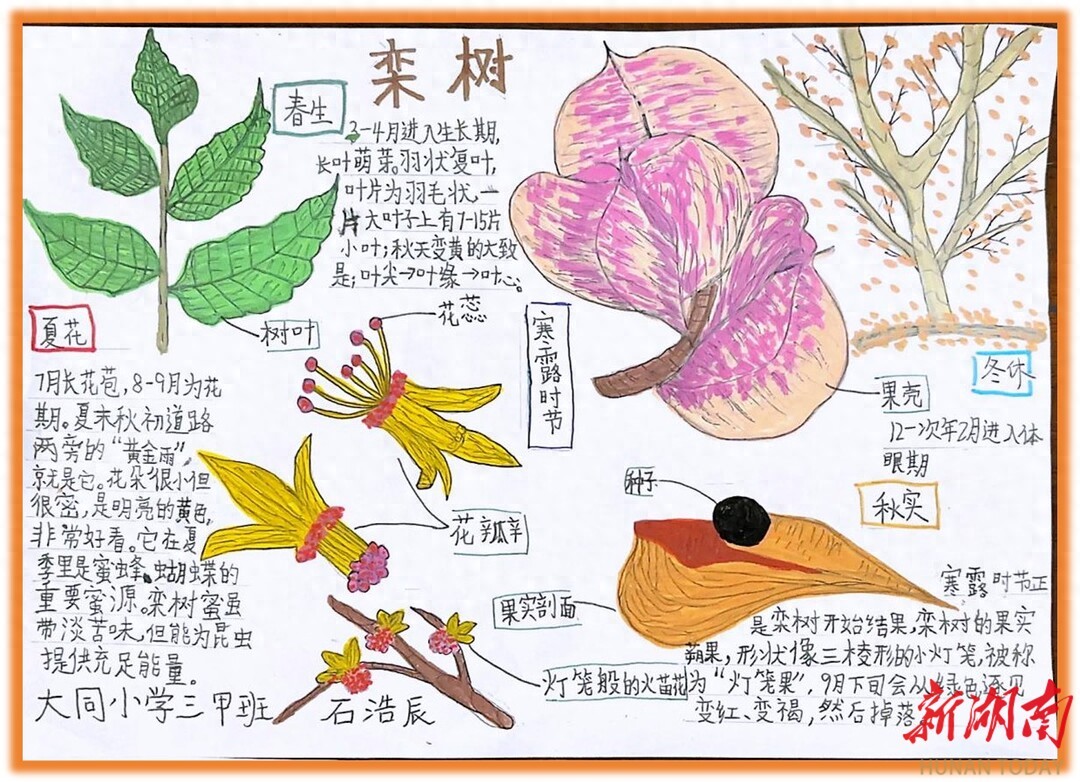 栾树
春生
3-4月进入生长期,
长叶萌芽。羽状复叶,
叶片为羽毛状,一
片大叶子上有7-15片
小叶;秋天变黄的大致
是;叶尖→叶缘→叶心。
树叶
夏花
7月长花苞,8-9月为花
期。夏末秋初道路
两旁的“黄金雨”,
就是它。花朵很小但
很密,是明亮的黄色,
非常好看。它在夏
季里是蜜蜂、蝴蝶的
重要蜜源。栾树蜜虽
带淡苦味,但能为昆虫
提供充足能量。
花蕊
花瓣
寒露时节
果壳
冬休
12-次年2月进入休
眠期
秋实
种子
果实剖面
寒露时节正
是栾树开始结果,栾树的果实
蒴果,形状像三棱形的小灯笼,被称
为“灯笼果”,9月下旬会从绿色逐见
变红、变褐,然后掉落
灯笼般的火苗花
大同小学三甲班 石浩辰
新湖南
HUNAN TODAY